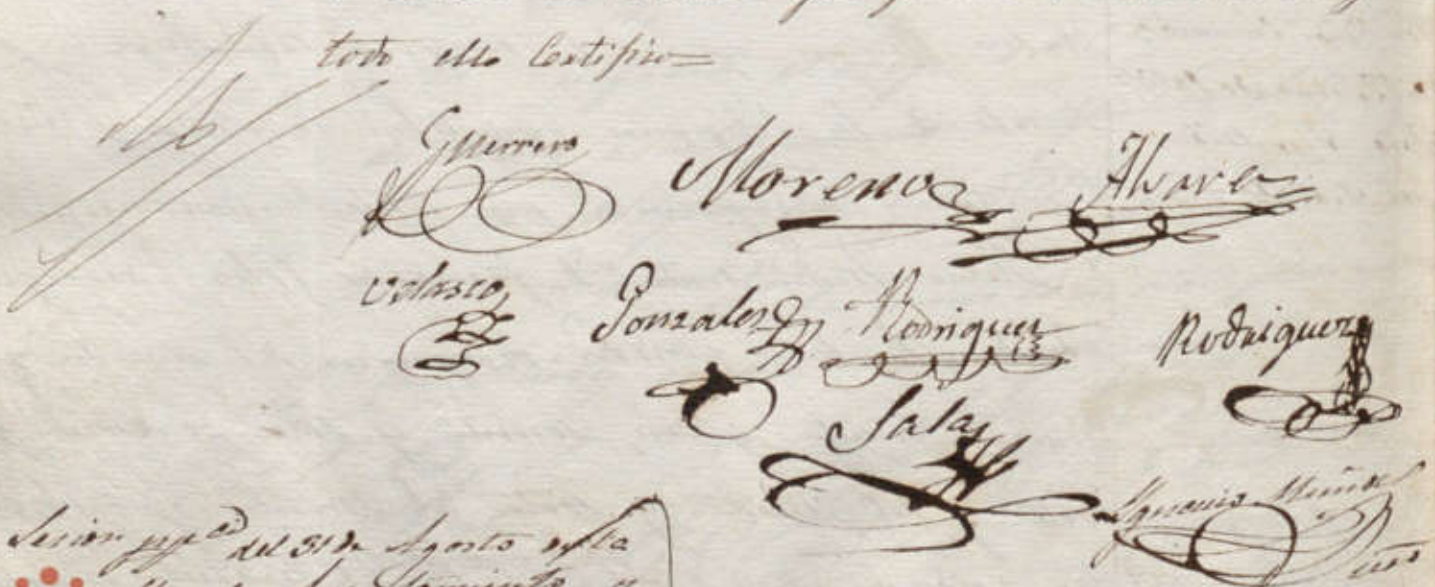 todo ello Certifico=
Guerrero Moreno Alvarez
Velasco Gonzalez Rodriguez Rodriguez
Sala
Ygnacio Muñoz
Sesion del 31 de Agosto